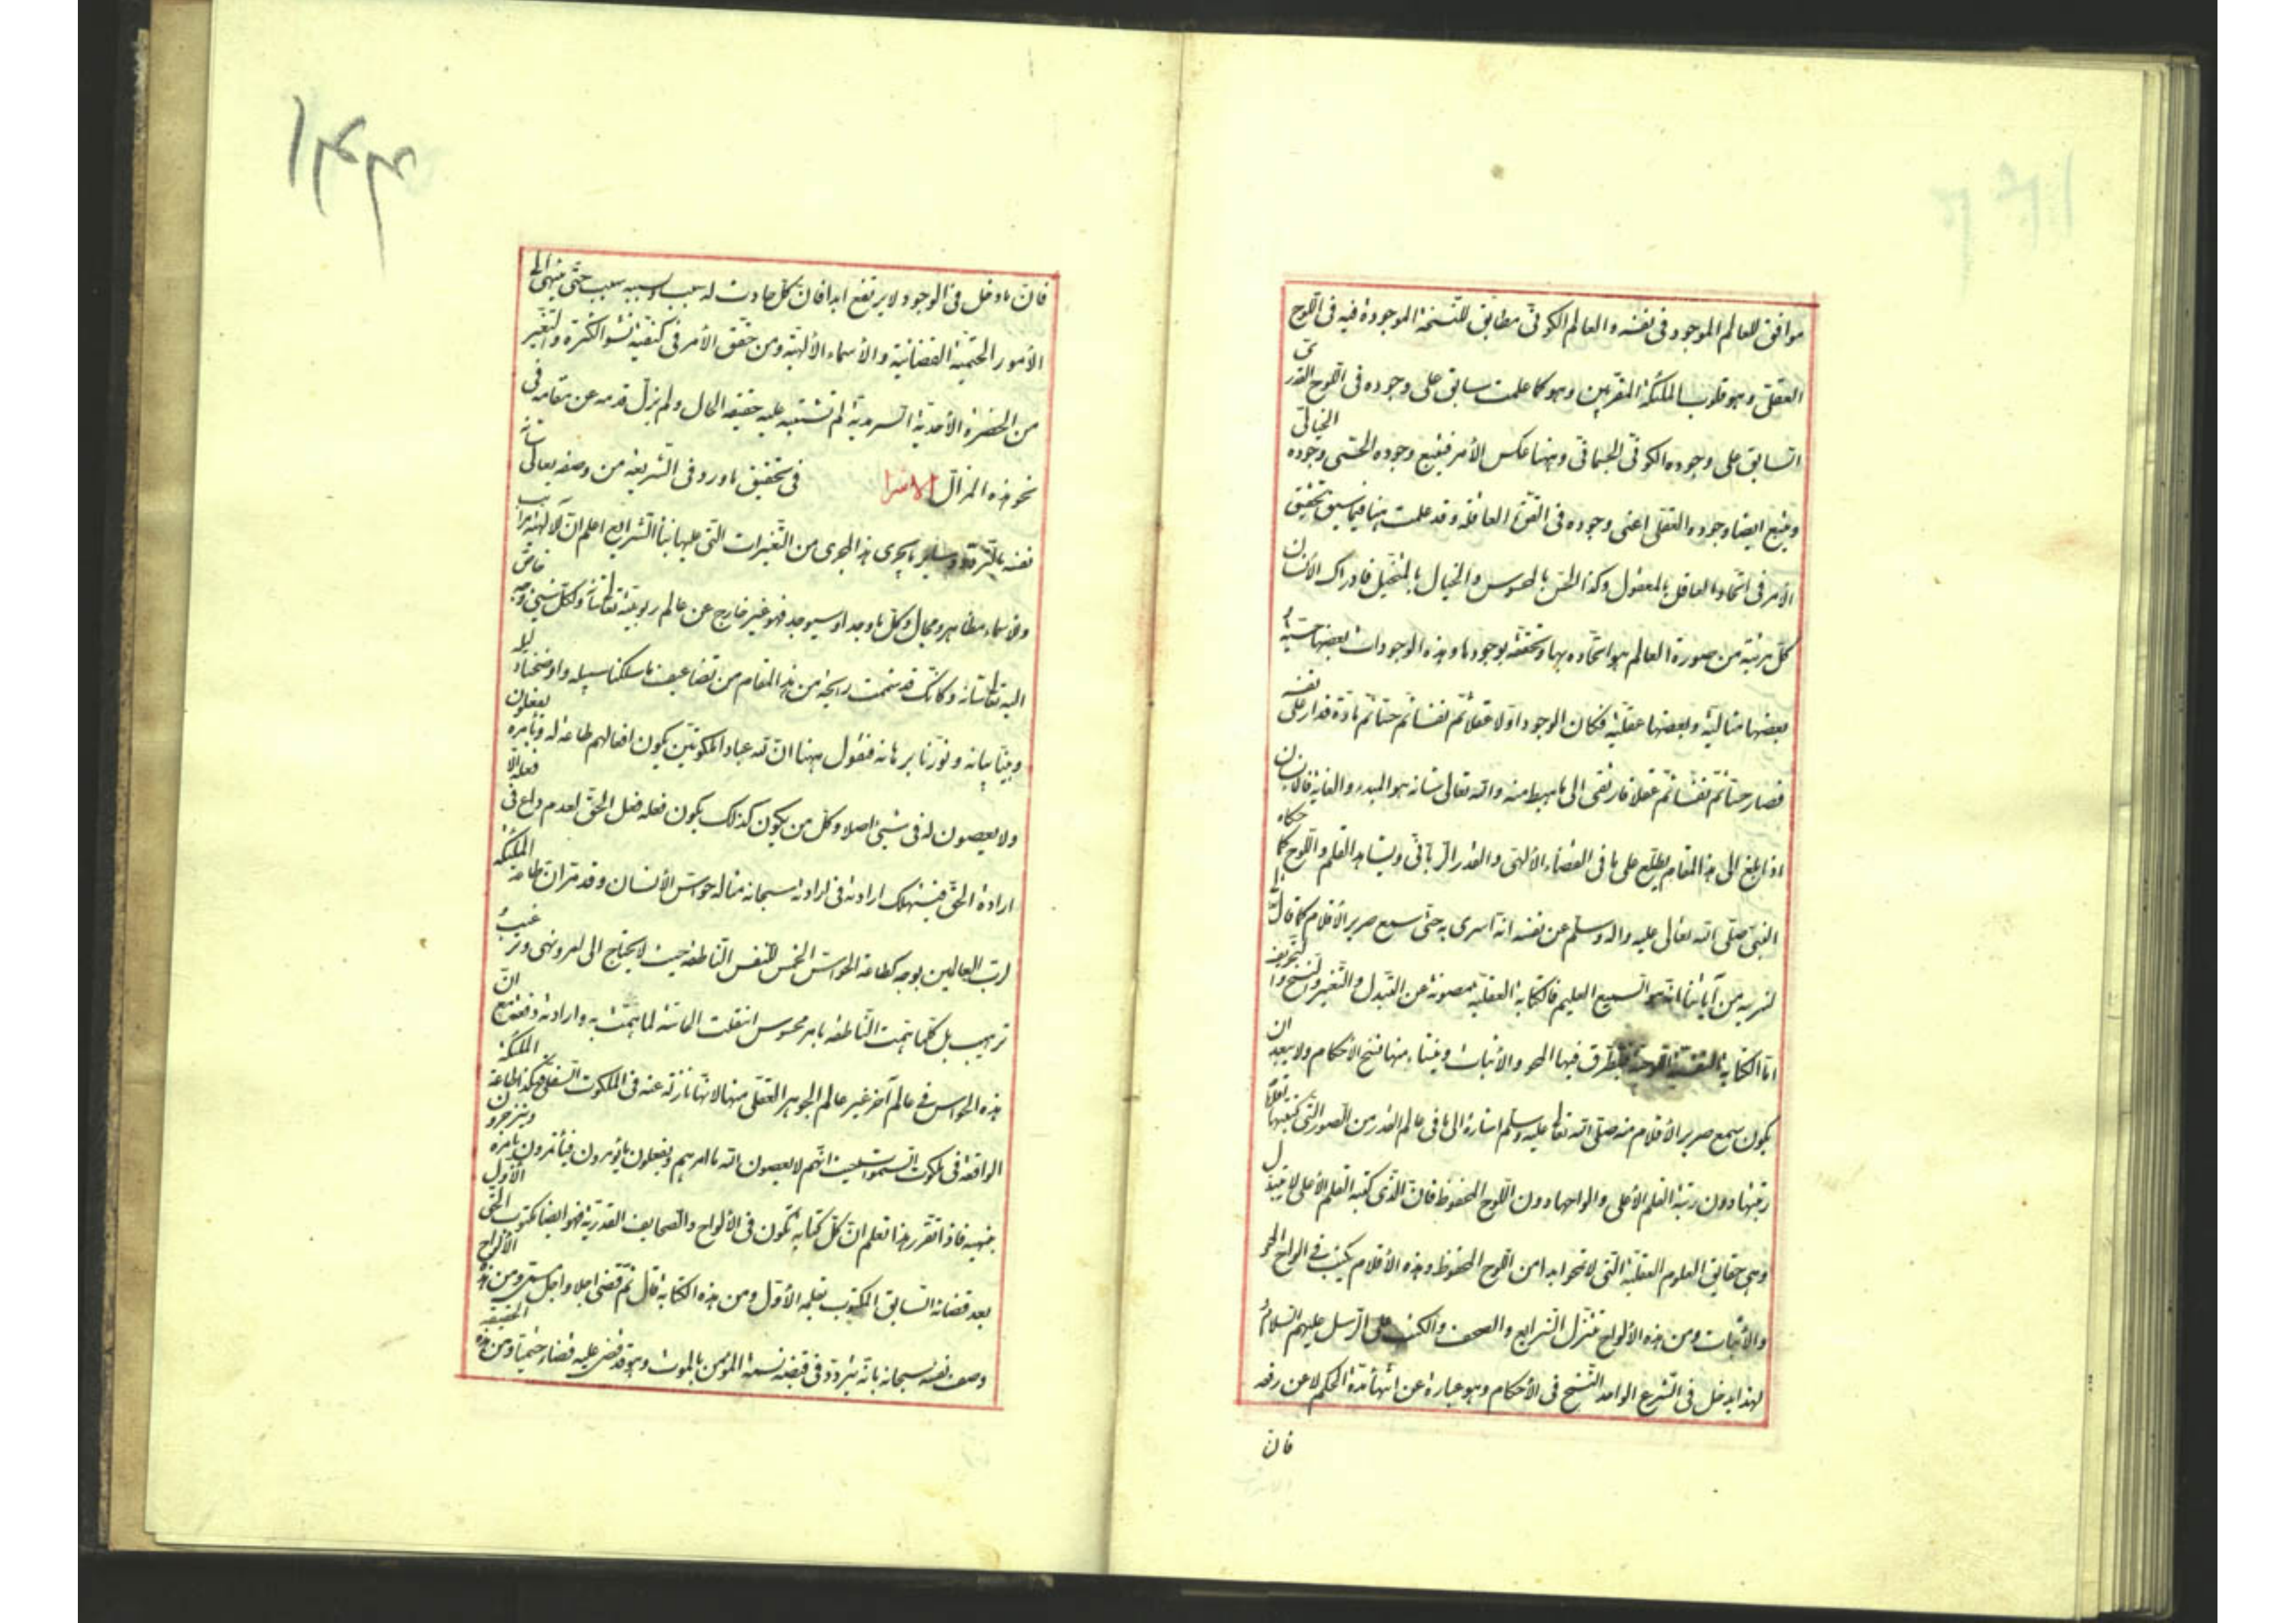 موافق للعالم الموجود فى نفسه والعالم الكونى مطابق للنسخة الموجودة فيه فى اللوح
العقلى وهو قلوب الملئكة المقربين وهو كما علمت سابق على وجوده فى اللوح القدرى
السابق على وجوده الكونى الجسمانى وههنا عكس الأمر فيتبع وجوده الحسى وجوده الخيالى
ويتبع ايضا وجوده العقلى اعنى وجوده فى القوة العاقلة وقد علمت هنا فيما سبق تحقيق
الأمر فى اتحاد العاقل بالمعقول وكذا الحس بالمحسوس والخيال بالمتخيل فادراك الأنسان
كل مرتبة من صورة العالم هو اتحاده بها وتحققه بوجودها وهذه الوجودات بعضها حسية و
بعضها مثالية وبعضها عقلية فكان الوجود اولا عقلا ثم نفسا ثم حسا ثم مادة فدار على نفسه
فصار حسا ثم نفسا ثم عقلا فارتقى الى ما هبط منه والله تعالى شانه هو المبدء والغاية فالانسان
اذا بلغ الى هذا المقام يطلع على ما فى القضاء الألهى والقدر الربانى ويشاهد القلم واللوح كما حكاه
النبى صلى الله تعالى عليه واله وسلم عن نفسه انه اسرى به حتى سمع صرير الأقلام كما قال تعالى
لنريه من آياتنا انه هو السميع العليم فالكتابة العقلية مصونة عن التبدل والتغير والنسخ والتحريف
اما الكتابة النفسية اللوحية فيتطرق فيها المحو والأثبات وينشاء منها نسخ الأحكام ولا يبعد ان
يكون سمع صرير الأقلام منه صلى الله تعالى عليه وسلم اشارة الى ما فى عالم القدر من الصور التى كتبتها اقلام
رتبتها دون رتبة القلم الأعلى والواحها دون اللوح المحفوظ فان الذى كتبه القلم الأعلى لا يتبدل
وهى حقايق العلوم العقلية التى لا تمحو ابدا من اللوح المحفوظ وهذه الأقلام يكتب فى الواح المحو
والأثبات ومن هذه الألواح تتنزل الشرايع والصحف والكتب على الرسل عليهم السلام و
لهذا يدخل فى الشرع الواحد النسخ فى الأحكام وهو عبارة عن انتهاء مدة الحكم لا عن رفعه
فان
فان ما دخل فى الوجود لا يرتفع ابدا فان كل حادث له سبب ولسببه سبب حتى ينتهى الى
الأمور الحتمية القضائية والأسماء الألهية ومن حقق الأمر فى كيفية نشو الكثرة والتغير
من الحضرة الأحدية السرمدية لم تشتبه عليه حقيقة الحال ولم يزل قدمه عن مقامه فى
نحو هذه المزال الاشرا فى تحقيق ما ورد فى الشريعة من وصفه تعالى شانه
نفسه بالتردد وسلبه ما يجرى هذا المجرى من التغيرات التى عليها بناء الشرايع اعلم ان للألهية مراتب
وللأسماء مظاهر ومجالى وكل ما وجد او سيوجد فهو غير خارج عن عالم ربوبيته تعالى شانه ولكل شيئ وجه خاص
اليه تعالى شانه وكانك قد شممت رايحة من هذا المقام من تضاعيف ما سلكنا سبيله واوضحنا دليله
وبينا بيانه ونورنا برهانه فنقول ههنا ان لله عبادا ملكوتيين يكون افعالهم طاعة له وبامره يفعلون
ولا يعصون له فى شيئ اصلا وكل من يكون كذلك يكون فعله فعل الحق لعدم داع فى فعله الا
ارادة الحق فيستهلك ارادته فى ارادته سبحانه مثاله حواس الأنسان وقد مر ان طاعة الملئكة
لرب العالمين بوجه كطاعة الحواس الخمس للنفس الناطقة حيث لا يحتاج الى امر ونهى وترغيب و
ترهيب بل كلما همت الناطقة بامر محسوس انفعلت الحاسة لما همت به وارادته دفعة مع ان
هذه الحواس فى عالم آخر غير عالم الجوهر العقلى منها لانها نازلة عنه فى الملكوت السفلى فهكذا طاعة الملئكة
الواقعة فى ملكوت السموات حيث انهم لا يعصون الله ما امرهم ويفعلون ما يؤمرون فيأتمرون بامره وينزجرون
بنهيه فاذا تقرر هذا تعلم ان كل كتابة تكون فى الألواح والصحايف القدرية فهو ايضا مكتوب الحق الأول
بعد قضائه السابق المكتوب بقلمه الأول ومن هذه الكتابة قال ثم قضى اجلا واجل مسمى ومن هذه الألواح
وصف نفسه سبحانه بانه يتردد فى قبضه نسمة المؤمن بالموت وهو قد قضى عليه قضاء حتميا ومن هذه الحقيقة